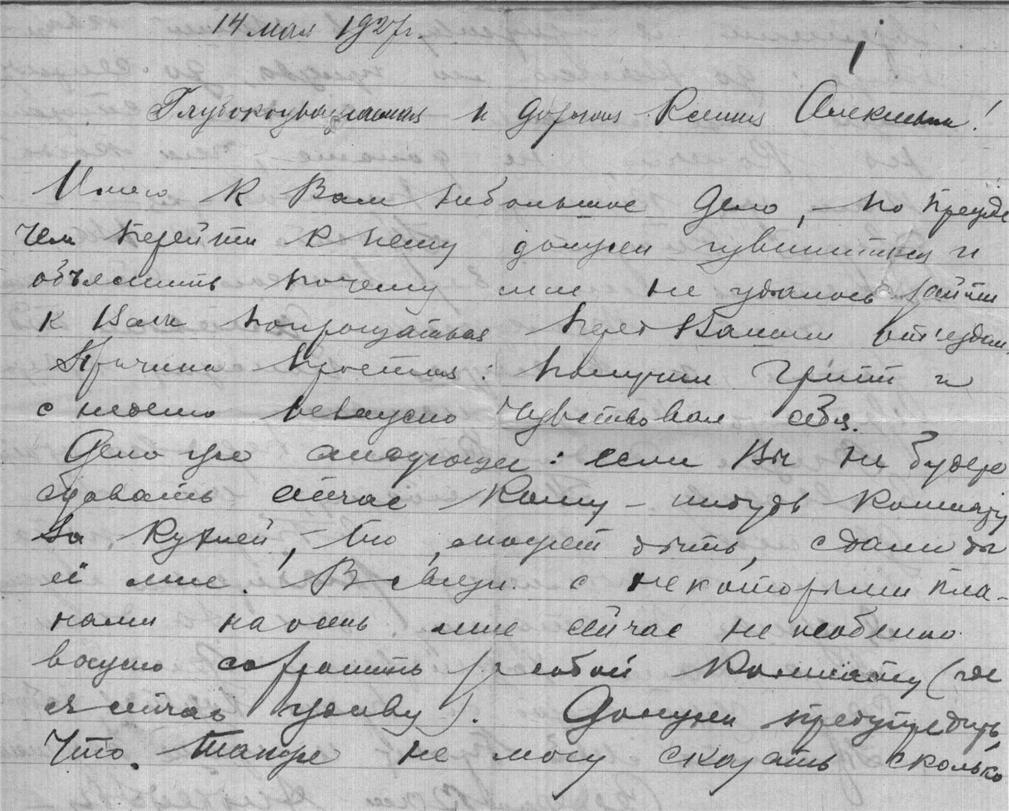 14 мая 1927г.
1
Глубокоуважаемая и дорогая Ксения Алексеевна!
Имею к Вам небольшое дело, – но прежде
чем перейти к нему должен извиниться и
объяснить почему мне не удалось зайти
к Вам попрощаться перед Вашим отъездом.
Причина простая: получил грипп и
с неделю неважно чувствовал себя.
Дело это следующее: если Вы не будете
сдавать сейчас кому-нибудь комнату
за кухней, то, может быть, сдали бы
её мне. В связи с некоторыми пла-
нами на осень мне сейчас не особенно
важно сохранить за собой комнату (где
я сейчас живу). Должен предупредить
что также не могу сказать сколько